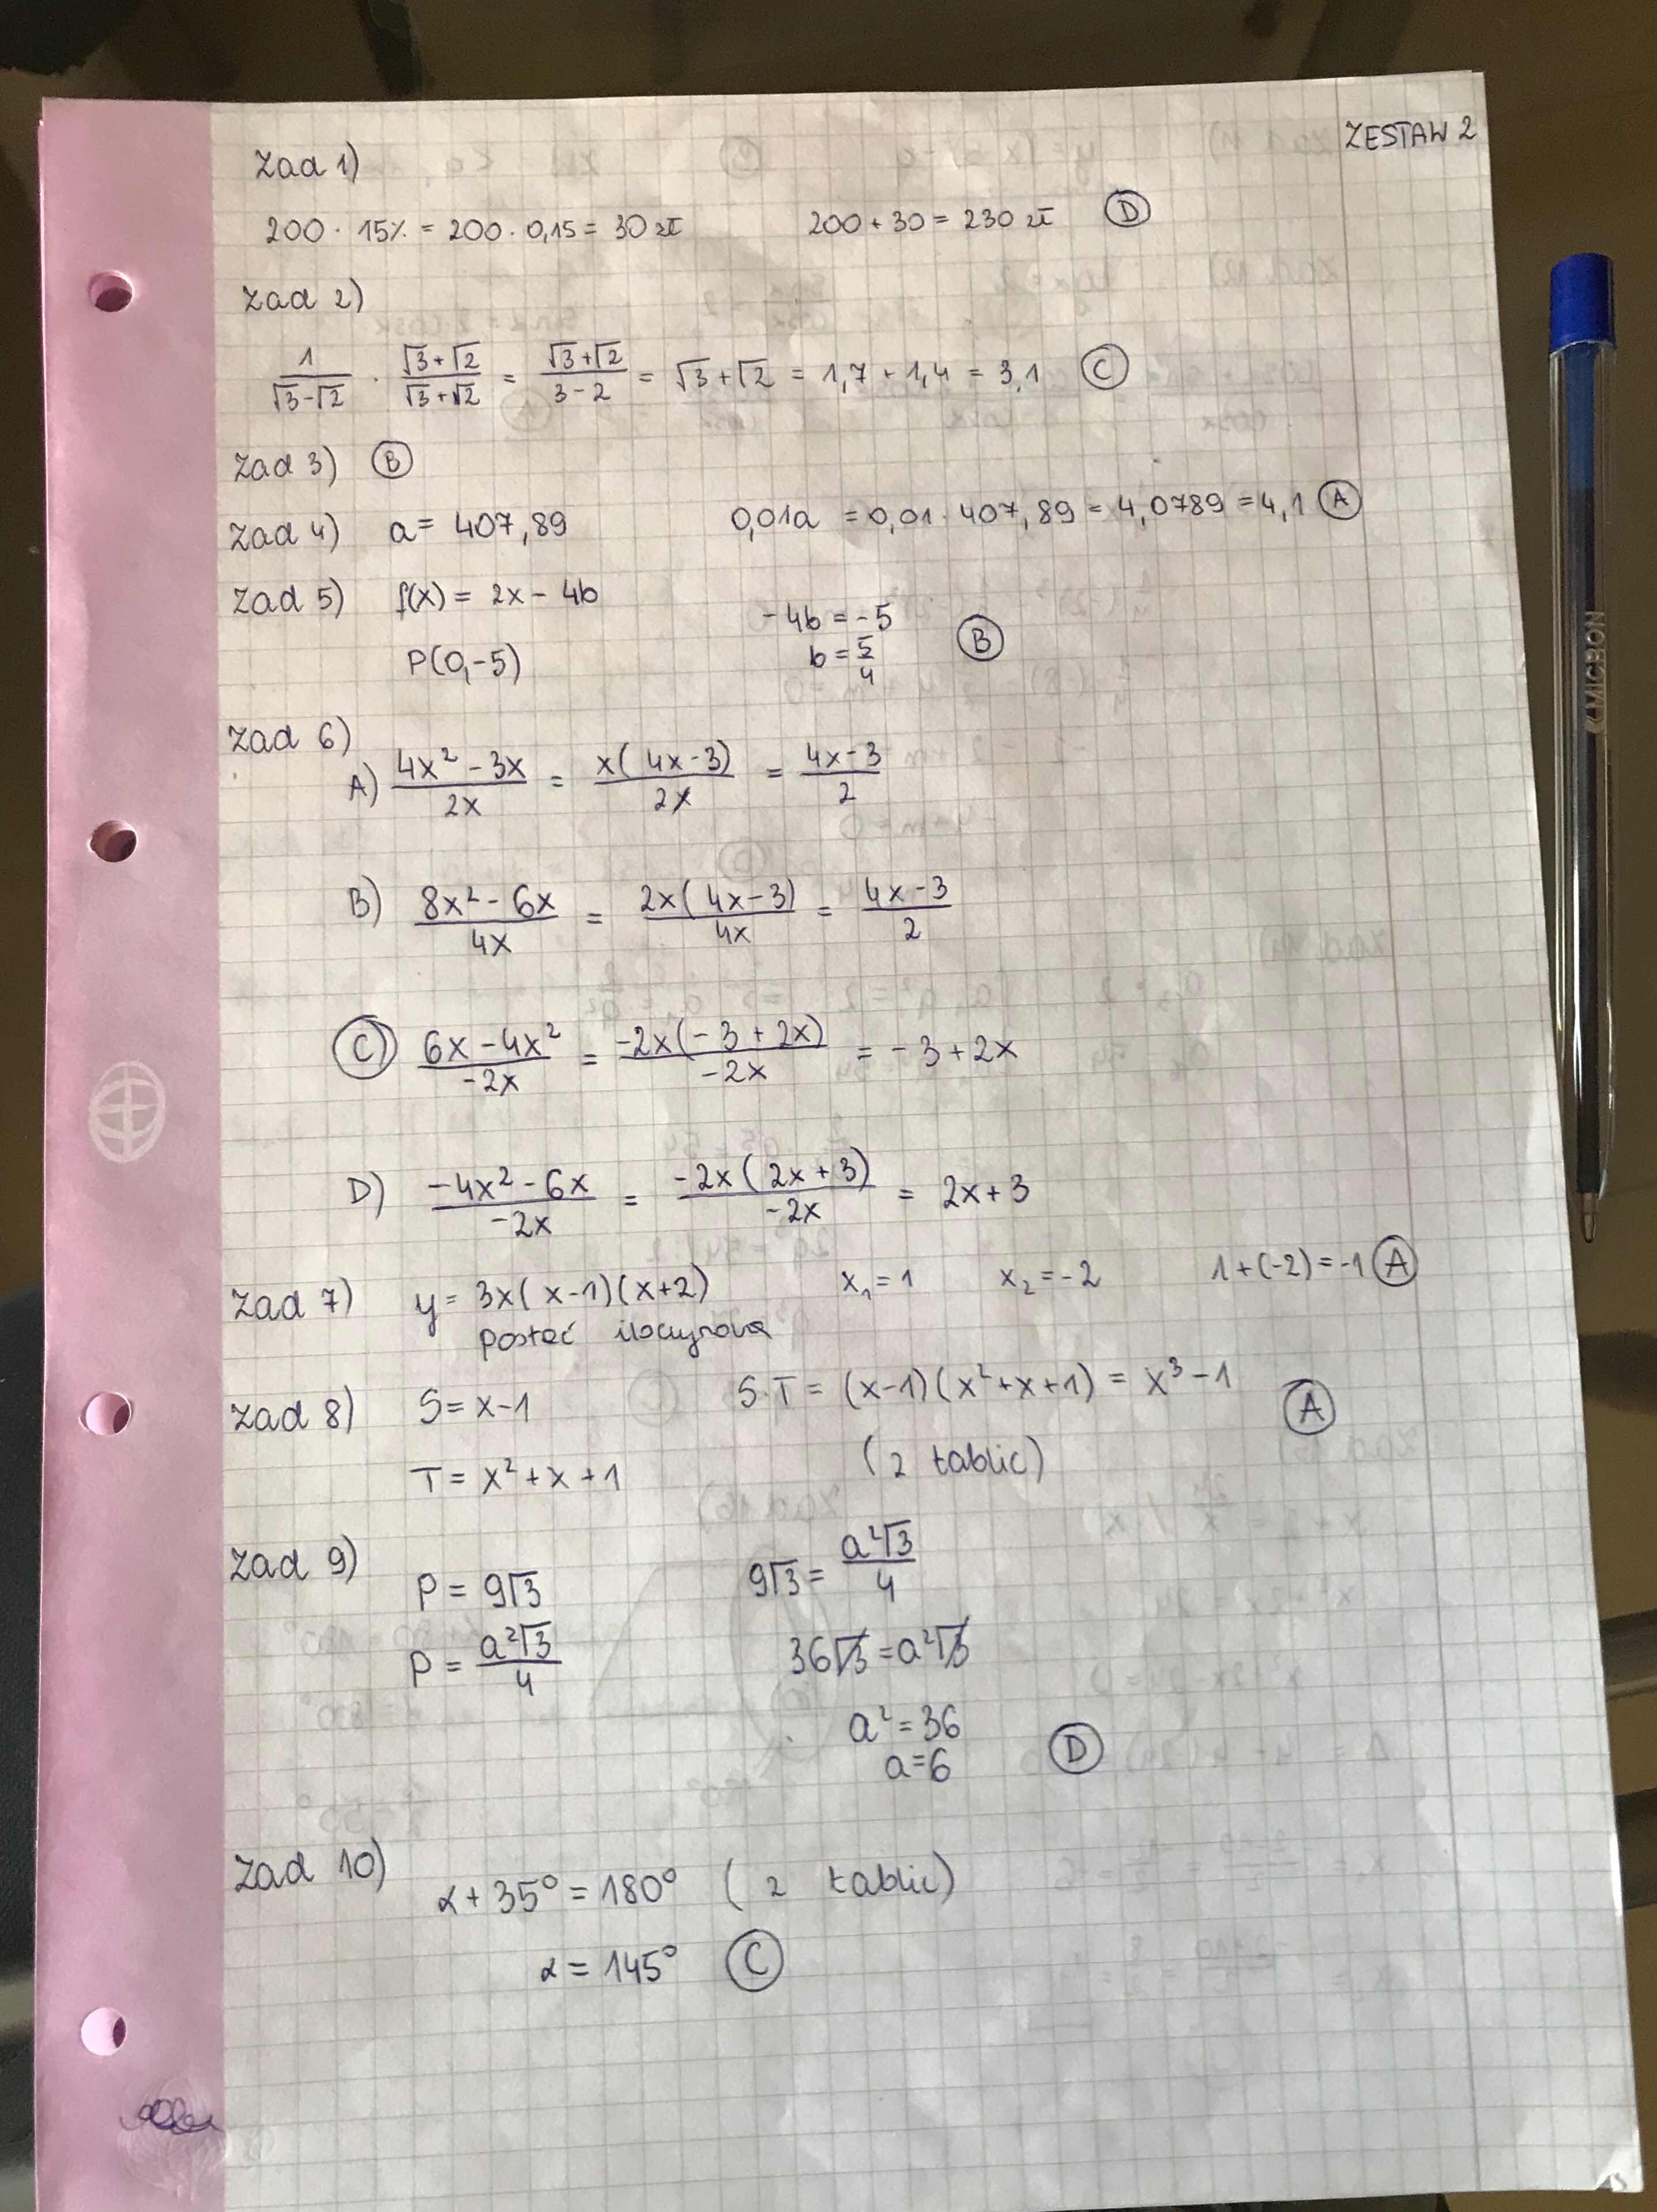 ZESTAW 2
Zad 1)
200 · 15% = 200 · 0,15 = 30 zł 200 + 30 = 230 zł D
Zad 2)
1/(√3-√2) · (√3+√2)/(√3+√2) = (√3+√2)/(3-2) = √3+√2 = 1,7 + 1,4 = 3,1 C
Zad 3) B
Zad 4) a = 407,89 0,01a = 0,01 · 407,89 = 4,0789 = 4,1 A
Zad 5) f(x) = 2x - 4b -4b = -5
P(0,-5) b = 5/4 B
Zad 6)
A) (4x² - 3x)/2x = x(4x-3)/2x = (4x-3)/2
B) (8x² - 6x)/4x = 2x(4x-3)/4x = (4x-3)/2
C) (6x - 4x²)/-2x = -2x(-3+2x)/-2x = -3+2x
D) (-4x² - 6x)/-2x = -2x(2x+3)/-2x = 2x+3
Zad 7) y = 3x(x-1)(x+2) x₁ = 1 x₂ = -2 1+(-2) = -1 A
postać iloczynowa
Zad 8) S = x-1 S·T = (x-1)(x²+x+1) = x³-1 A
T = x²+x+1 (z tablic)
Zad 9) P = 9√3 9√3 = a²√3/4
P = a²√3/4 36√3 = a²√3
a² = 36
a = 6 D
Zad 10) α + 35° = 180° (z tablic)
α = 145° C
MICRON